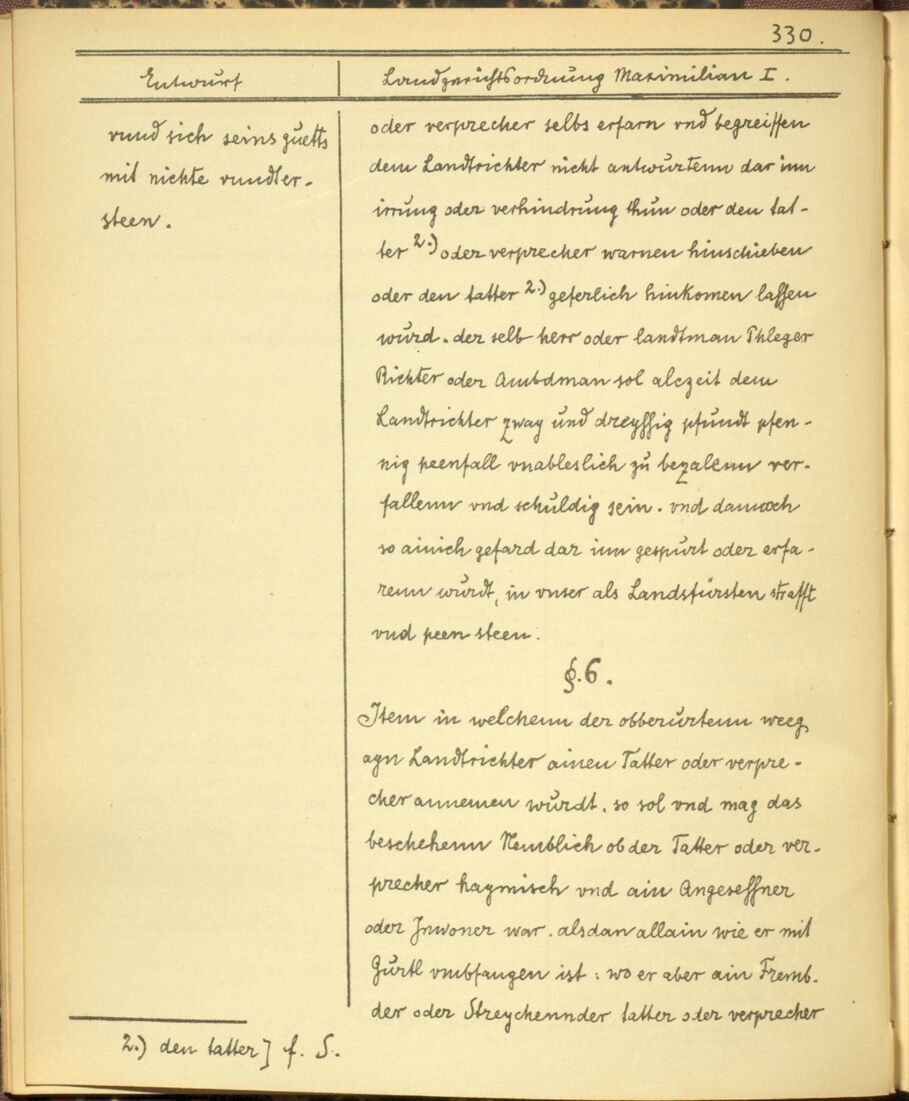 330.
Entwurf
Landgerichtsordnung Maximilian I.
vnnd sich seins guetts
mit nichte vnndter-
steen.
oder verprecher selbs erfarn vnd begreiffen
dem Landtrichter nicht antwürtenn dar inn
irrung oder verhindrung thun oder den tat-
ter 2.) oder verprecher warnen hinschieben
oder den tatter 2.) geferlich hinkomen lassen
wurd. der selb herr oder landtman Phleger
Richter oder Ambdman sol alczeit dem
Landtrichter zway und dreyssig pfundt pfen-
nig peenfall vnableslich zu bezalenn ver-
fallenn vnd schuldig sein. vnd dannoch
so ainich gefard dar inn gespürt oder erfa-
renn wurdt, in vnser als Landsfürsten strafft
vnd peen steen.
§.6.
Item in welchenn der obberürtenn weeg
ayn Landtrichter ainen Tatter oder verpre-
cher annemen wurdt. so sol vnd mag das
beschehenn Nemblich ob der Tatter oder ver-
precher haymisch vnd ain Angesessner
oder Inwoner war. alsdan allain wie er mit
Gürtl vmbfangen ist: wo er aber ain Fremb-
der oder Streychennder tatter oder verprecher
2.) den tatter] f. S.